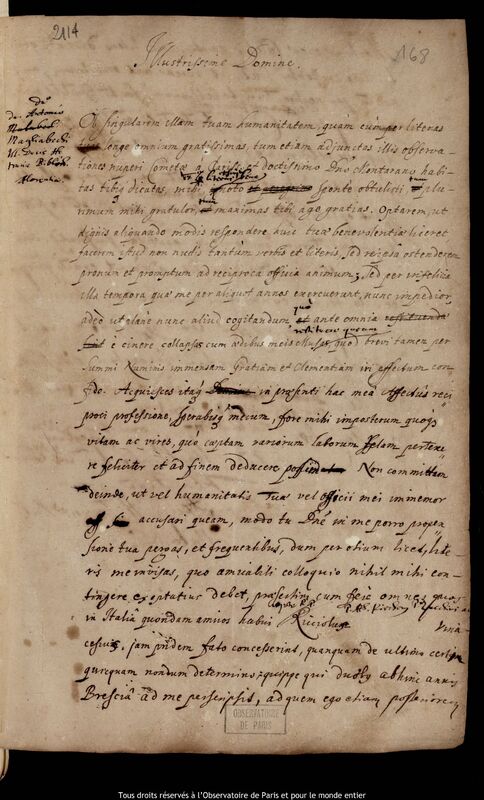 2114
168
Illustrissime Domine.
dno
do. Antonio
Magliabechi
M. Ducis He
truriæ Biblioth.
Florentiæ
Ob singularem illam tuam humanitatem, quam cum per literas
longe omnium gratissimas, tum etiam adjunctas illis observa
tiones nuperi Cometæ a et doctissimo Dno Montanario habi
tas tibiq dicatas, mihi ignoto sponte obtulisti plu
rimum mihi gratulor, et maximas tibi ago gratias. Optarem, ut
dignis aliquando modis respondere huic tuæ benevolentiæ liceret
facerem istud non nudis tantum verbis et literis, sed reipsa ostenderem
pronum et promptum ad reciproca officia animum, sed per infelicia
illa tempora quæ me per aliquot annos exercuerunt, nunc impedior,
quo
adeo ut plane nunc aliud cogitandum et ante omnia restituenda
restituere queam
sint e cinere collapsas cum ædibus meis Musas, quod brevi tamen per
summi Numinis immensam Gratiam et Clementiam in effectum con
fido. Acquiesces itaq Domine in præsenti hac mea Affectus reci
proci professione, sperabisq mecum, fore mihi imposterum quoq
vitam ac vires, quo captam variorum laborum telam pertexe
re feliciter et ad finem deducere possim. Non committam
deinde, ut vel humanitatis Tuæ vel officii mei immemor
accusari queam, modo tu Dne in me porro propen
sione tua pergas, et frequentibus, dum per otium licet, lite
ris me invisas, quo amicabili colloquio nihil mihi con
tingere exoptatius debet, præsertim cum fere omnes quos
in Italia quondam amicos habui Ricciolus
cesiuq, jam pridem fato concesserint, quanquam de ultimo certi
quicquam nondum determino, quippe qui duobq abhinc annis
Brescia ad me perscripsit, ad quem ego etiam
OBSERVATOIRE
DE PARIS
Tous droits réservés à l'Observatoire de Paris et pour le monde entier